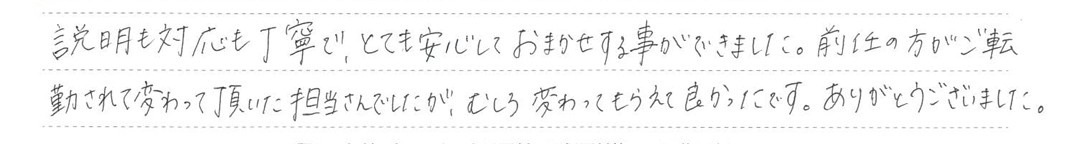 説明も対応も丁寧で、とても安心しておまかせする事ができました。前任の方がご転
勤されて変わって頂いた担当さんでしたが、むしろ変わってもらえて良かったです。ありがとうございました。